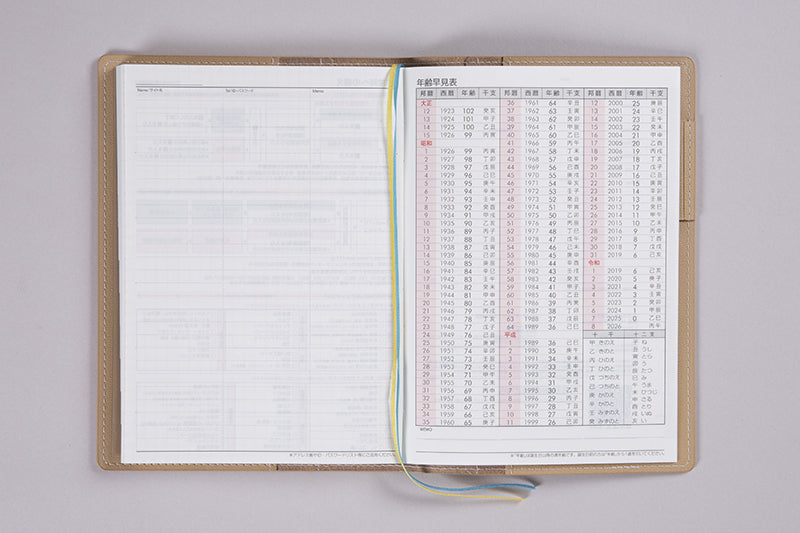 Name/サイト名 Tel/ID・パスワード Memo
年齢早見表
邦暦 西暦 年齢 干支 邦暦 西暦 年齢 干支 邦暦 西暦 年齢 干支
大正 36 1961 64 辛丑 12 2000 25 庚辰
12 1923 102 癸亥 37 1962 63 壬寅 13 2001 24 辛巳
13 1924 101 甲子 38 1963 62 癸卯 14 2002 23 壬午
14 1925 100 乙丑 39 1964 61 甲辰 15 2003 22 癸未
15 1926 99 丙寅 40 1965 60 乙巳 16 2004 21 甲申
昭和 41 1966 59 丙午 17 2005 20 乙酉
1 1926 99 丙寅 42 1967 58 丁未 18 2006 19 丙戌
2 1927 98 丁卯 43 1968 57 戊申 19 2007 18 丁亥
3 1928 97 戊辰 44 1969 56 己酉 20 2008 17 戊子
4 1929 96 己巳 45 1970 55 庚戌 21 2009 16 己丑
5 1930 95 庚午 46 1971 54 辛亥 22 2010 15 庚寅
6 1931 94 辛未 47 1972 53 壬子 23 2011 14 辛卯
7 1932 93 壬申 48 1973 52 癸丑 24 2012 13 壬辰
8 1933 92 癸酉 49 1974 51 甲寅 25 2013 12 癸巳
9 1934 91 甲戌 50 1975 50 乙卯 26 2014 11 甲午
10 1935 90 乙亥 51 1976 49 丙辰 27 2015 10 乙未
11 1936 89 丙子 52 1977 48 丁巳 28 2016 9 丙申
12 1937 88 丁丑 53 1978 47 戊午 29 2017 8 丁酉
13 1938 87 戊寅 54 1979 46 己未 30 2018 7 戊戌
14 1939 86 己卯 55 1980 45 庚申 31 2019 6 己亥
15 1940 85 庚辰 56 1981 44 辛酉 令和
16 1941 84 辛巳 57 1982 43 壬戌 1 2019 6 己亥
17 1942 83 壬午 58 1983 42 癸亥 2 2020 5 庚子
18 1943 82 癸未 59 1984 41 甲子 3 2021 4 辛丑
19 1944 81 甲申 60 1985 40 乙丑 4 2022 3 壬寅
20 1945 80 乙酉 61 1986 39 丙寅 5 2023 2 癸卯
21 1946 79 丙戌 62 1987 38 丁卯 6 2024 1 甲辰
22 1947 78 丁亥 63 1988 37 戊辰 7 2025 0 乙巳
23 1948 77 戊子 64 1989 36 己巳 8 2026 丙午
24 1949 76 己丑 平成 十干 十二支
25 1950 75 庚寅 1 1989 36 己巳 甲 きのえ 子 ね
26 1951 74 辛卯 2 1990 35 庚午 乙 きのと 丑 うし
27 1952 73 壬辰 3 1991 34 辛未 丙 ひのえ 寅 とら
28 1953 72 癸巳 4 1992 33 壬申 丁 ひのと 卯 う
29 1954 71 甲午 5 1993 32 癸酉 戊 つちのえ 辰 たつ
30 1955 70 乙未 6 1994 31 甲戌 己 つちのと 巳 み
31 1956 69 丙申 7 1995 30 乙亥 庚 かのえ 午 うま
32 1957 68 丁酉 8 1996 29 丙子 辛 かのと 未 ひつじ
33 1958 67 戊戌 9 1997 28 丁丑 壬 みずのえ 申 さる
34 1959 66 己亥 10 1998 27 戊寅 癸 みずのと 酉 とり
35 1960 65 庚子 11 1999 26 己卯 戌 いぬ
亥 い
MEMO
※アドレス帳やID・パスワードリスト等にご活用ください。
※「年齢」は誕生日以降の満年齢です。誕生日前の方は「年齢」から1歳を引いてください。